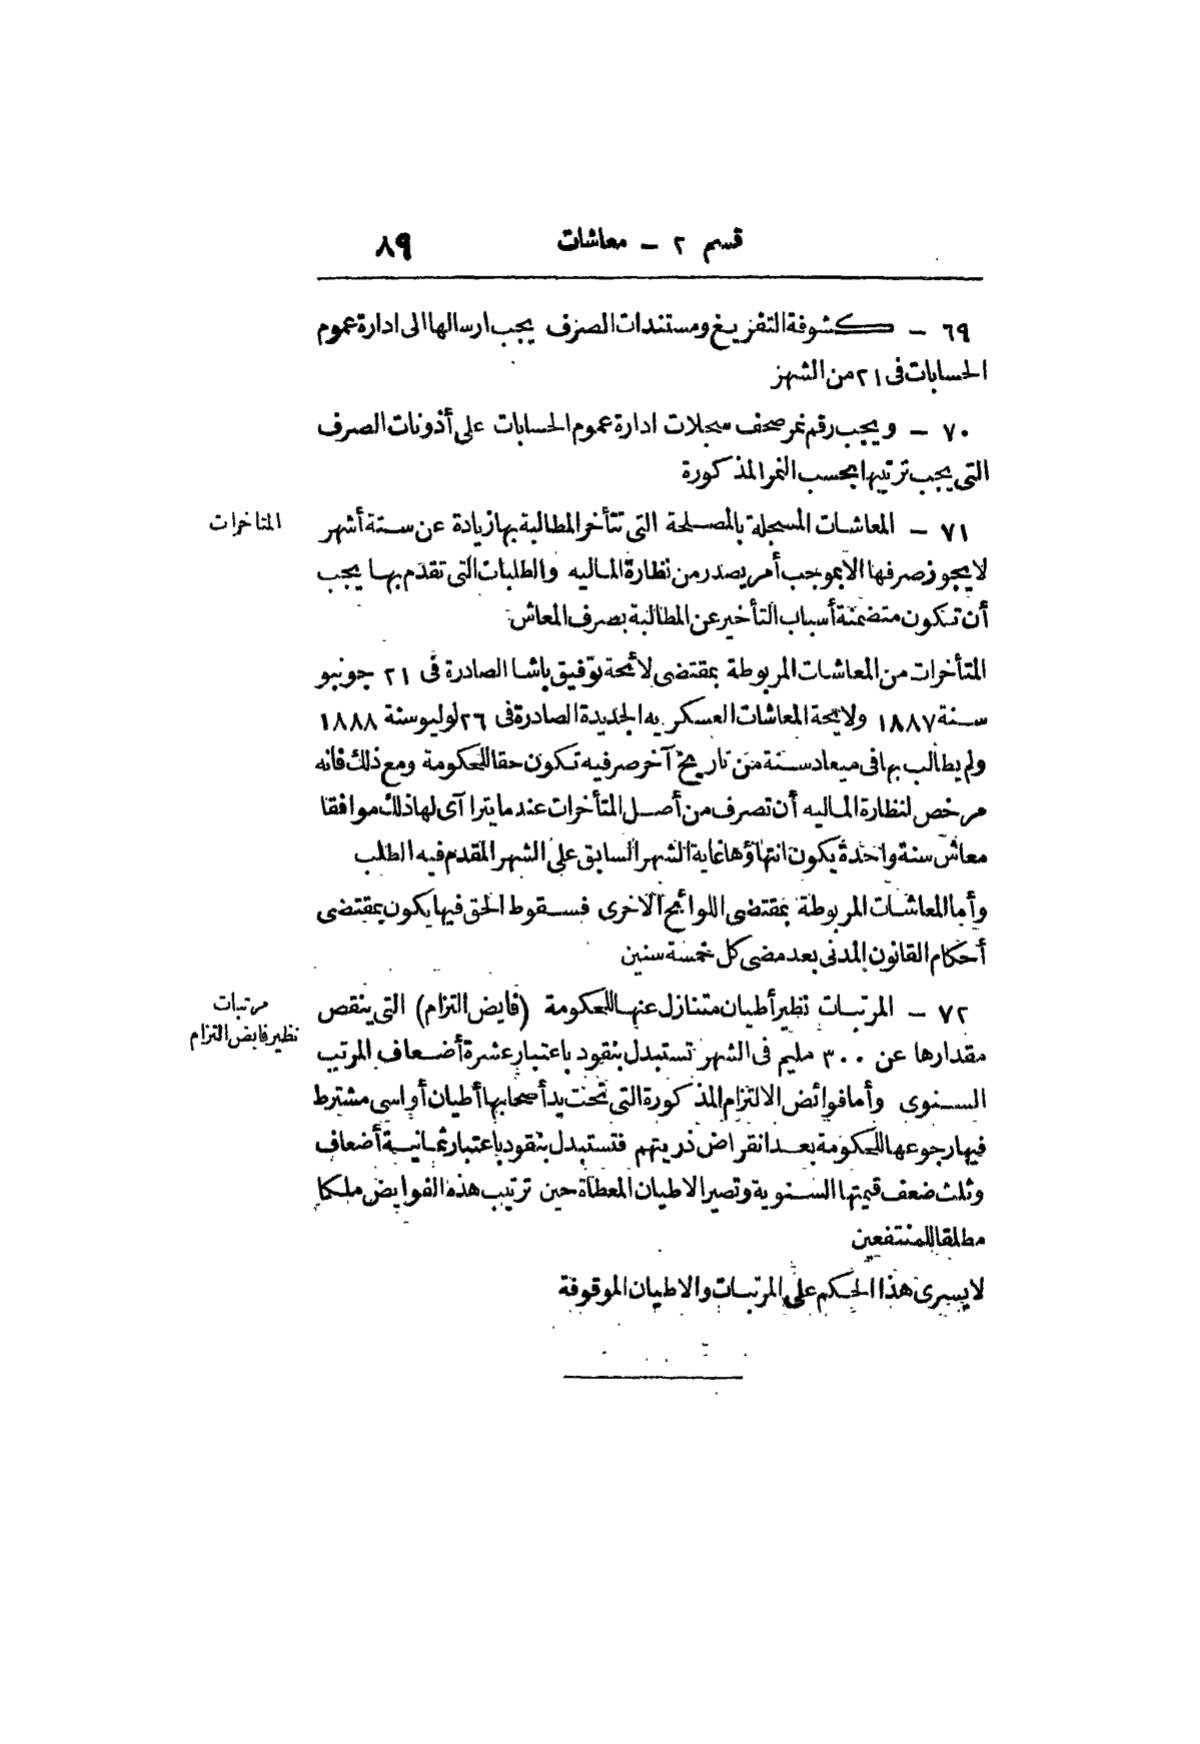 قسم ٢ — معاشات ٨٩
٦٩ — كشوفة التفريغ ومستندات الصرف يجب ارسالها الى ادارة عموم
الحسابات فى ٢١ من الشهر
٧٠ — ويجب رقم نمر صحف سجلات ادارة عموم الحسابات على أذونات الصرف
التى يجب ترتيبها بحسب النمر المذكورة
المتاخرات
٧١ — المعاشات المسجلة بالمصلحة التى تتأخر المطالبة بها زيادة عن ستة أشهر
لا يجوز صرفها الا بموجب أمر يصدر من نظارة الماليه والطلبات التى تقدم بها يجب
أن تكون متضمنة أسباب التأخير عن المطالبة بصرف المعاش
المتأخرات من المعاشات المربوطة بمقتضى لائحة توفيق باشا الصادرة فى ٢١ جونيو
سنة ١٨٨٧ ولايحة المعاشات العسكريه الجديدة الصادرة فى ٢٦ لوليو سنة ١٨٨٨
ولم يطالب بها فى ميعاد سنة من تاريخ آخر صرفيه تكون حقا للحكومة ومع ذلك فانه
مرخص لنظارة الماليه أن تصرف من أصل المتأخرات عندما يترا آى لها ذلك موافقا
معاش سنة واحدة يكون انتهاؤها غاية الشهر السابق على الشهر المقدم فيه الطلب
وأما المعاشات المربوطة بمقتضى اللوائح الاخرى فسقوط الحق فيها يكون بمقتضى
أحكام القانون المدنى بعد مضى كل خمسة سنين
مرتبات
نظير فايض التزام
٧٢ — المرتبات نظير أطيان متنازل عنها للحكومة (فايض التزام) التى ينقص
مقدارها عن ٣٠٠ مليم فى الشهر تستبدل بنقود باعتبار عشرة أضعاف المرتب
السنوى وأما فوائض الالتزام المذكورة التى تحت يد أصحابها أطيان أواسى مشترط
فيها رجوعها للحكومة بعد انقراض ذريتهم فتستبدل بنقود باعتبار ثمانية أضعاف
وثلث ضعف قيمتها السنوية وتصير الاطيان المعطاة حين ترتيب هذه الفوايض ملكا
مطلقا للمنتفعين
لا يسرى هذا الحكم على المرتبات والاطيان الموقوفة